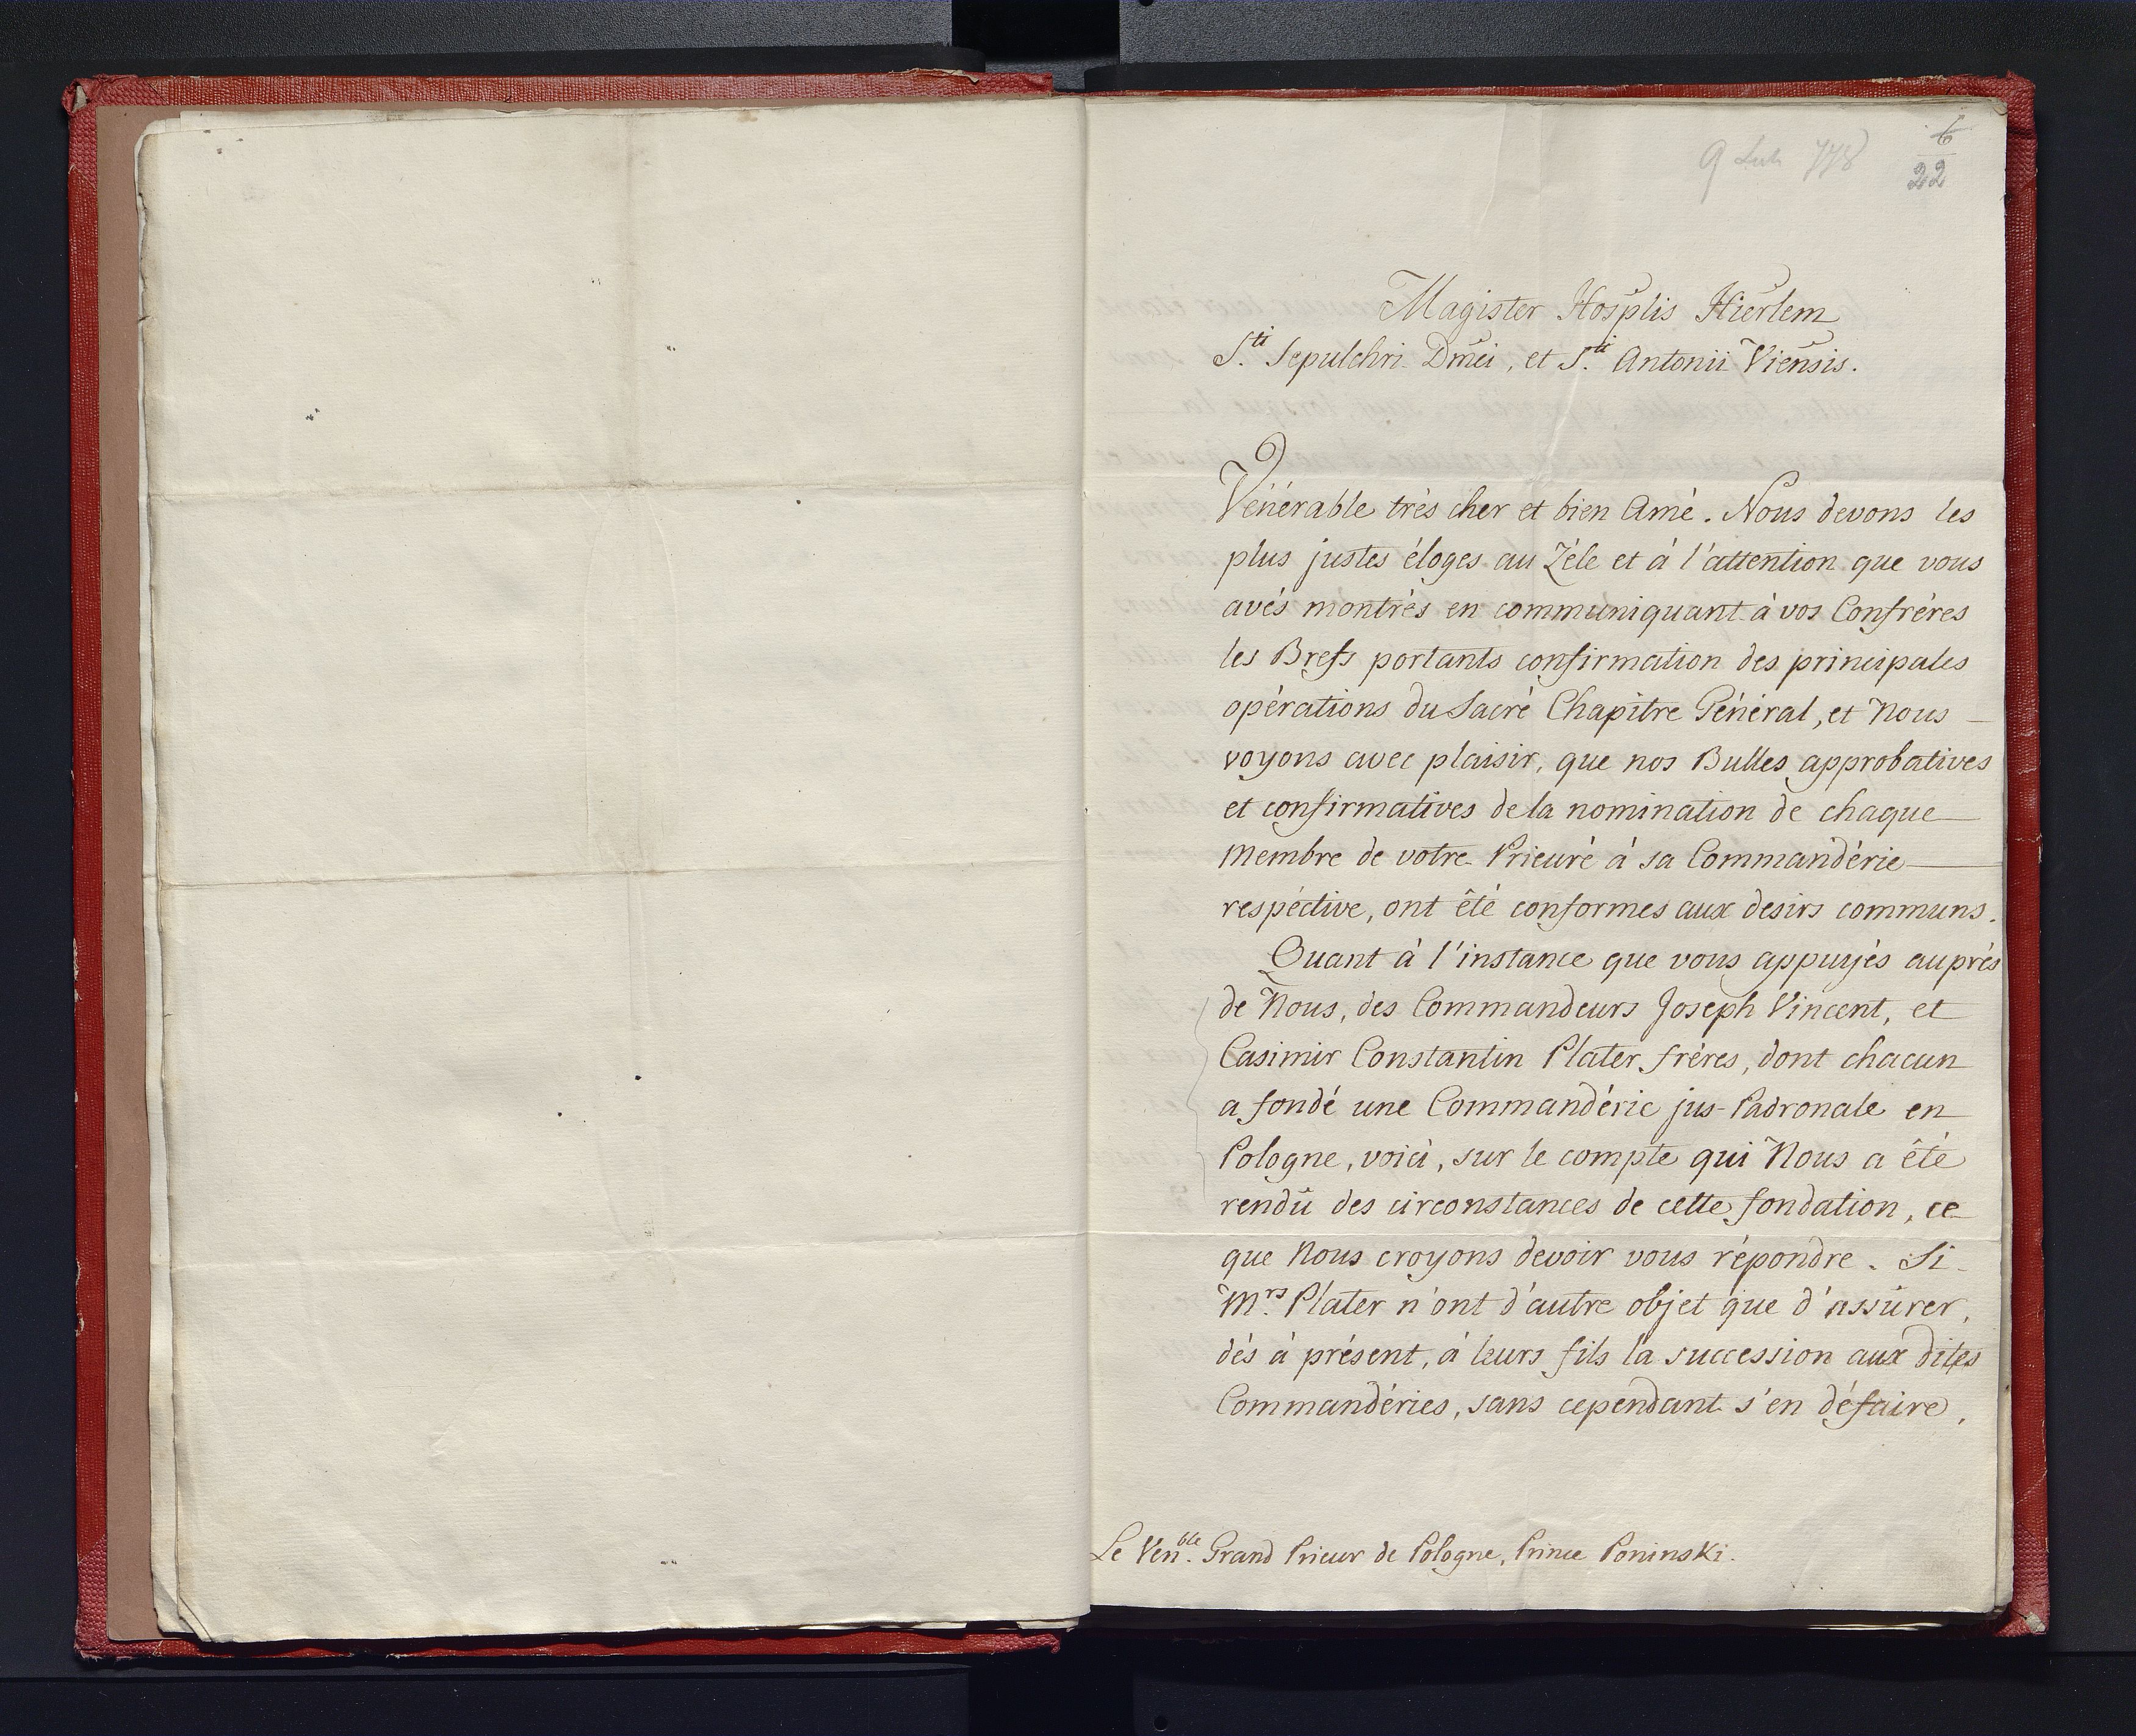 6
9 Lut. 778
22
Magister Hosplis Hierlem
S.ti Sepulchri Dmci, et S.ti Antonii Viensis.
Vénérable très cher et bien Amé. Nous devons les
plus justes éloges au Zéle et à l'attention que vous
avés montrés en communiquant à vos Confréres
les Brefs portants confirmation des principales
opérations du Sacré Chapitre Général, et Nous
voyons avec plaisir, que nos Bulles approbatives
et confirmatives de la nomination de chaque
Membre de votre Prieuré à sa Commandérie
respéctive, ont êté conformes aux desirs communs.
Quant à l'instance que vous appuyés auprés
de Nous, des Commandeurs Joseph Vincent, et
Casimir Constantin Plater fréres, dont chacun
a fondé une Commandérie jus-Padronale en
Pologne, voici, sur le compte qui Nous a êté
rendû des circonstances de cette fondation, ce
que Nous croyons devoir vous répondre. Si
M.rs Plater n'ont d'autre objet que d'assûrer,
dés à présent, à leurs fils la succession aux dites
Commandéries, sans cependant s'en défaire,
Le Ven.ble Grand Prieur de Pologne, Prince Poninski.